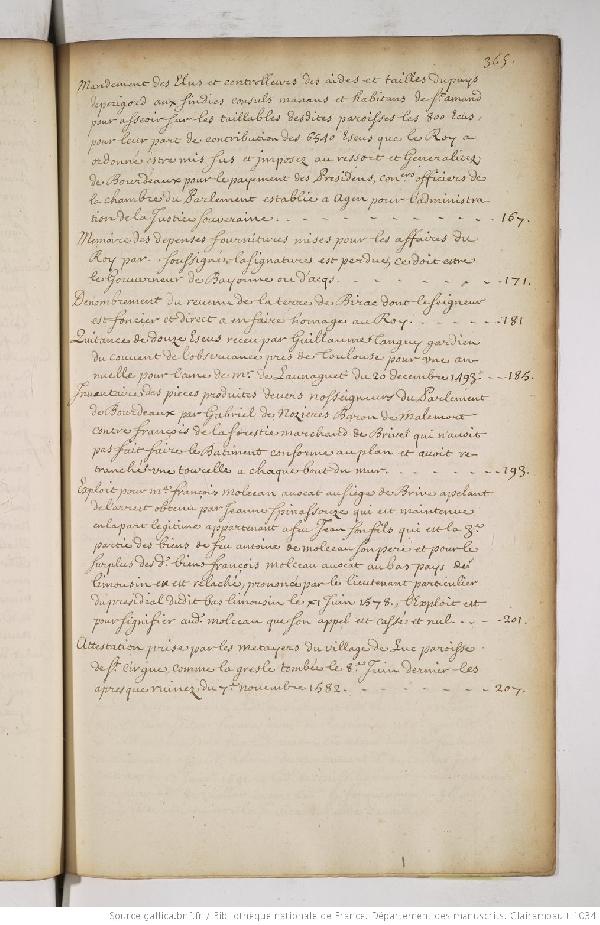 365.
Mandement des Elus et controlleurs des aides et tailles du pays
de perigord aux sindics consuls manans et habitans de St. amand
pour asseoir sur les taillables desdites paroisses les 800 Ecus,
pour leur part de contribution des 6540 Escus que le Roy a
ordonné estre mis sus et imposez au ressort et Generalitez
de Bourdeaux pour le payement des Presidens, coners. officiers de
la chambre du Parlement establie a Agen pour l'administra
tion de la Justice souveraine. - - - - - - - - 167.
Memoire des depenses fournitures mises pour les affaires du
Roy par soussigner la signatures est perdue, ce doit estre
le Gouverneur de Bayonne ou d'acqs. - - - - - 171.
Denombrement du revenu de la terre de Birac dont le seigneur
est foncier et direct a en faire homage au Roy. - - - - - 181
Quitance de douze Escus receu par Guillaume Languy gardien
du couvent de l'observance pres de Toulouse pour une an-
nuelle pour l'ame de Mr. de Launaguet du 20 decembre 1493. - - 185.
Inventaire des pieces produites devers nosseigneurs du Parlement
de Bourdeaux par Gabriel de Nozieres Baron de Malemort
contre françois de la forestie marchand de Brive qui n'avoit
pas fait faire le Batiment conforme au plan et avoit re-
tranché une tourelle a chaque bout du mur. - - - - - 193.
Exploit pour Me. françois molceau avocat au siege de Brive apelant
de l'arrest obtenu par Jeanne qui est maintenue
en la part legitime appartenant a feu Jean son fils qui est la 3e.
partie des biens de feu antoine de molceau son pere et pour le
surplus des ds. biens françois molceau avocat au bas pays de
limousin en est relaché, prononcé par le lieutenant particulier
du presidial dudit bas limousin le XI Juin 1578, l'Exploit est
pour signifier aud. molceau que son appel est cassé et nul - - - 201.
Attestation prise par les metayers du village de Luc paroisse
de St. Cirgue, comme la gresle tombée le 8e. Juin dernier les
a presque ruinez, du 7e. novembre 1582. - - - - - - 207.
Source gallica.bnf.fr / Bibliothèque nationale de France. Département des manuscrits. Clairambault 1034